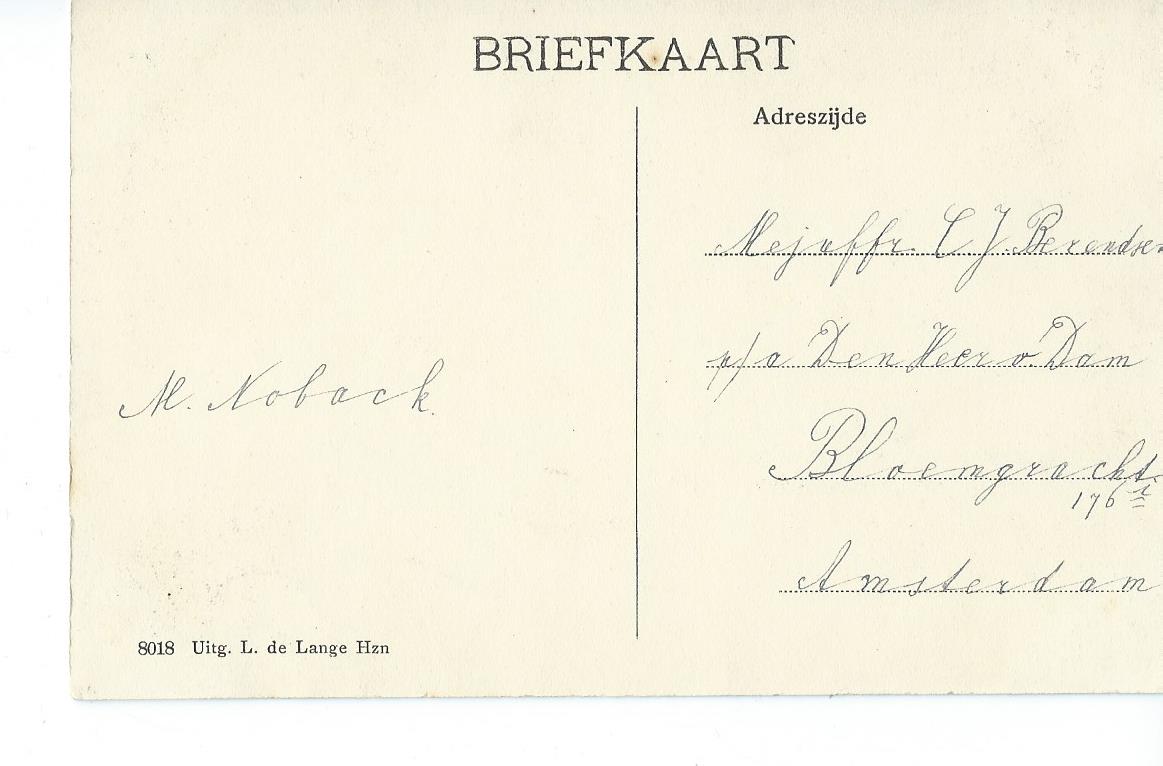 BRIEFKAART
Adreszijde
Mejuffr. C J. Berendsen
p/a Den Heer v. Dam
Bloemgracht.
176 I
Amsterdam
M. Noback.
8018 Uitg. L. de Lange Hzn